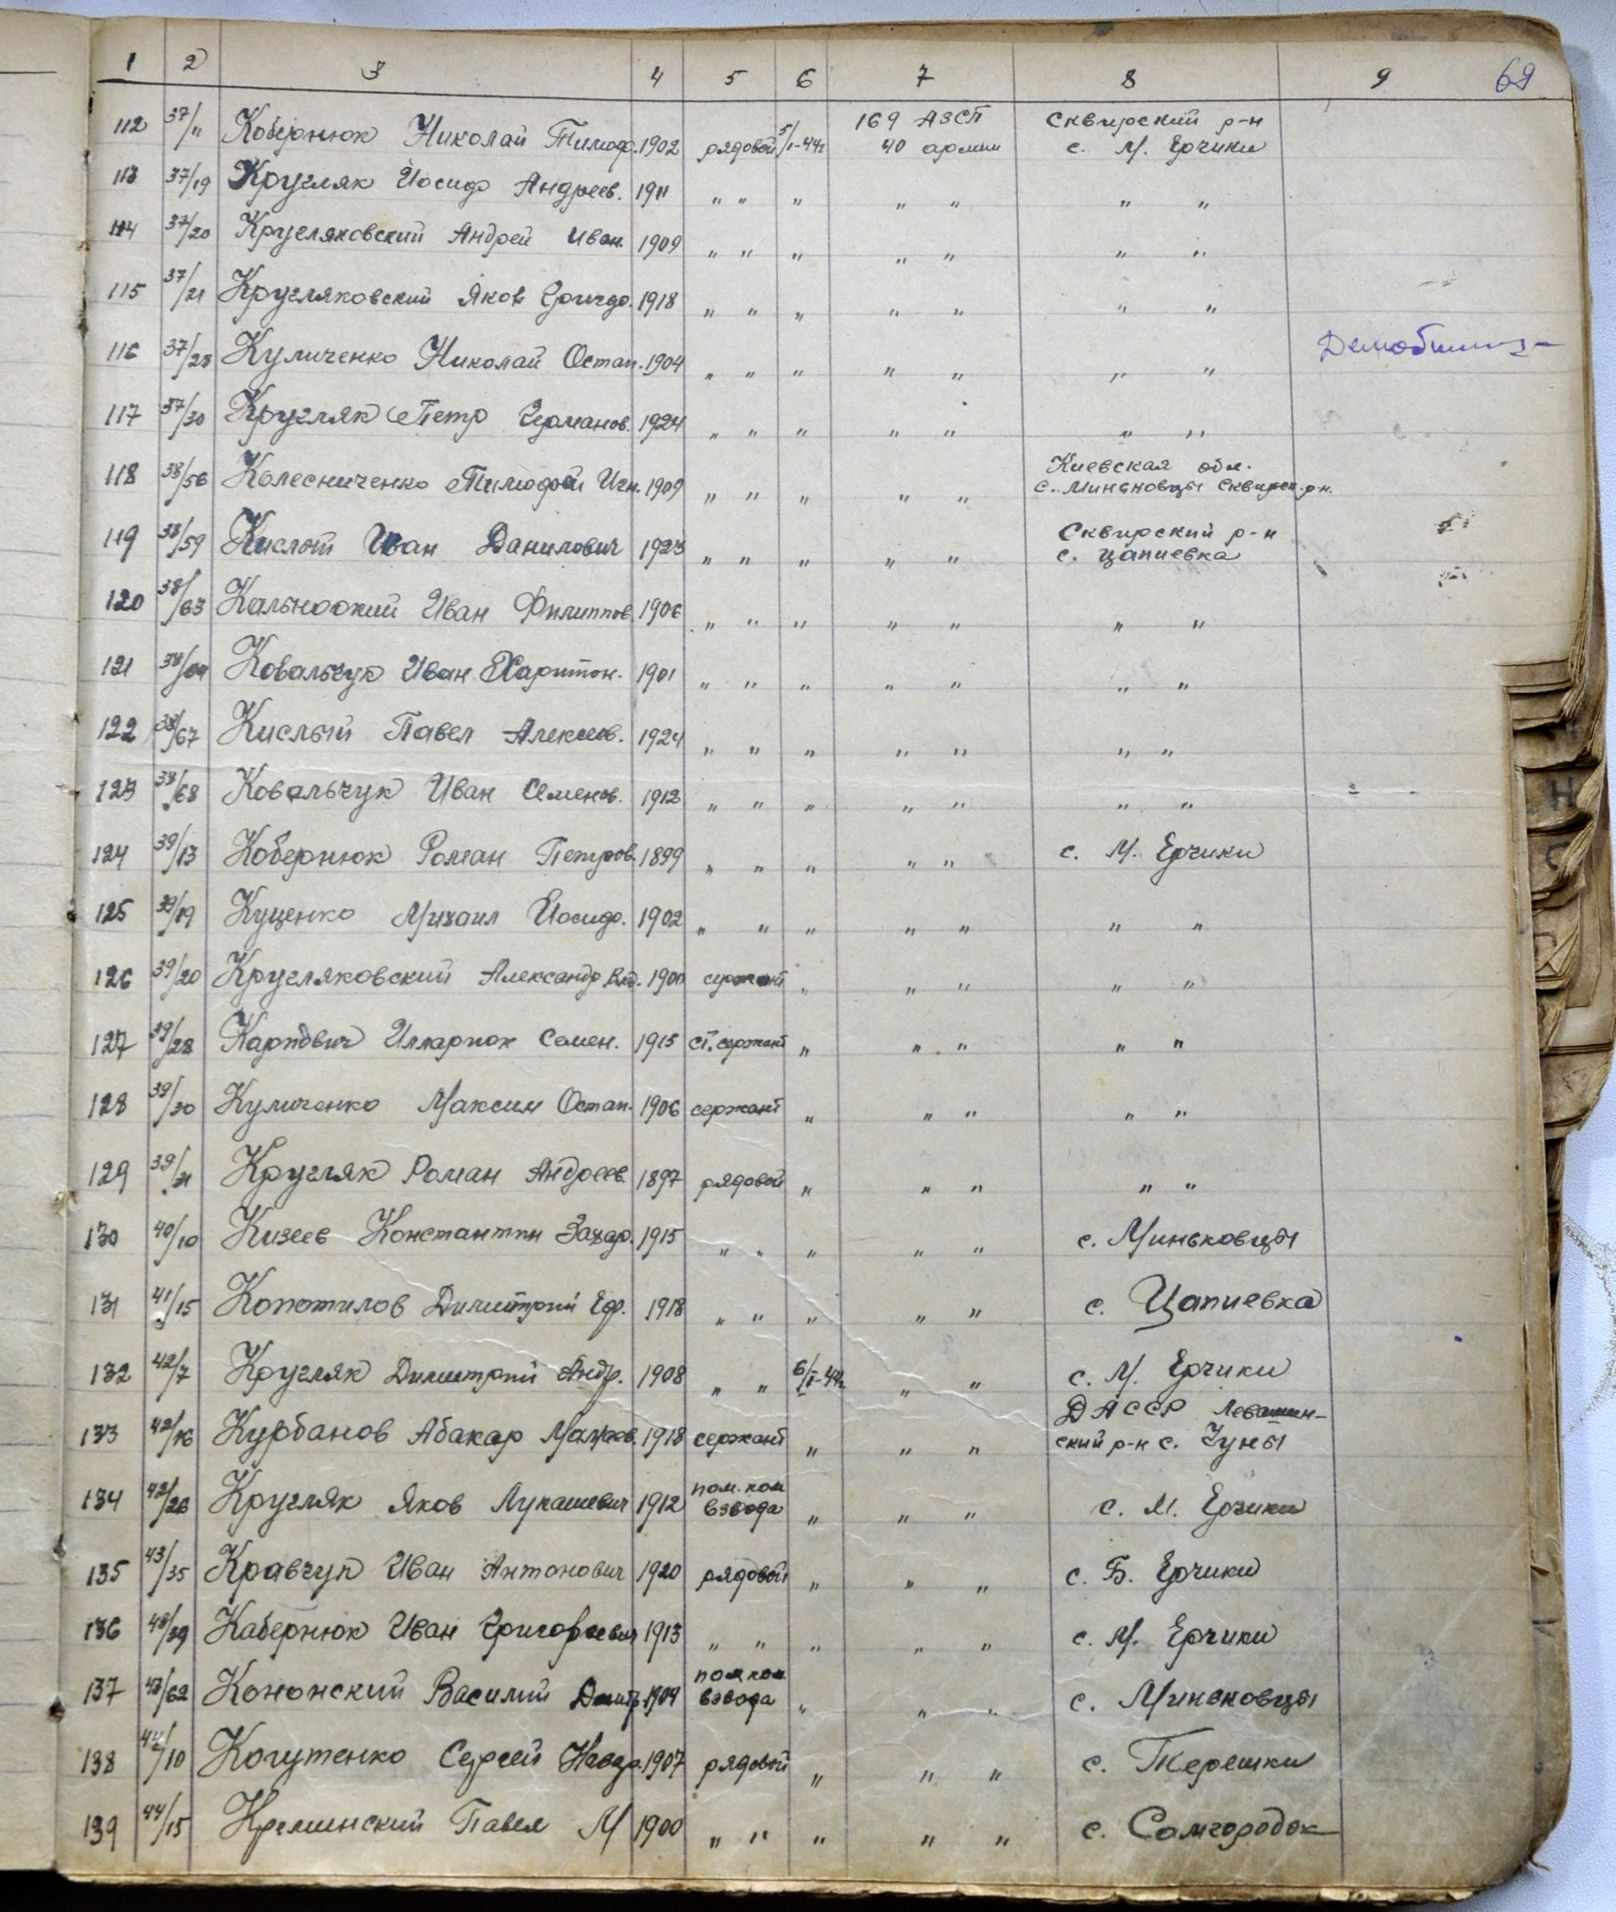 1 2 3 4 5 6 7 8 9 69
112 37/11 Кобернюк Николай Тимоф. 1902 рядовой 5/I-44г 169 АЗСП 40 армии Сквирский р-н с. М. Ерчики
113 37/19 Кругляк Иосиф Андреев. 1911 " " " " " " "
114 37/20 Кругляковский Андрей Иван. 1909 " " " " " " "
115 37/21 Кругляковский Яков 1918 " " " " " " "
116 37/28 Куличенко Николай Остап. 1904 " " " " " " "
117 37/30 Кругляк Петр Германов. 1924 " " " " " " "
118 38/56 Колесниченко Тимофей Игн. 1909 " " " " " Киевская обл. с. Миньковцы Сквирск. р-н.
119 38/59 Кислот Иван Данилович 1923 " " " " " Сквирский р-н с. Цапиевка
120 38/63 Иван Филиппов. 1906 " " " " " " "
121 Ковальчук Иван Харитон. 1901 " " " " " " "
122 38/67 Кислый Павел Алексеев. 1924 " " " " " " "
123 38/68 Ковальчук Иван Семенов. 1912 " " " " " " "
124 39/13 Кобернюк Роман Петров. 1899 " " " " " с. М. Ерчики
125 39/19 Куценко Михаил Иосиф. 1902 " " " " " " "
126 39/20 Кругляковский Александр 1900 сержант " " " " "
127 39/28 Карпович Илларион Семен. 1915 ст. сержант " " " " "
128 39/30 Куличенко Максим Остап. 1906 сержант " " " " "
129 Кругляк Роман Андреев. 1897 рядовой " " " " "
130 40/10 Кизеев Константин Захар. 1915 " " " " " с. Миньковцы
131 41/15 Копотилов Димитрий Еф. 1918 " " " " " с. Цапиевка
132 42/7 Кругляк Димитрий Андр. 1908 " " 6/I-44г " " с. М. Ерчики
133 42/16 Курбанов Абакар 1918 сержант " " " ДАССР Левашинский р-н с. Чуны
134 42/26 Кругляк Яков Лукашевич 1912 пом. ком взвода " " " с. М. Ерчики
135 43/35 Кравчук Иван Антонович 1920 рядовой " " " с. Б. Ерчики
136 43/39 Кабернюк Иван Григорьевич 1913 " " " " " с. М. Ерчики
137 43/62 Кононский Василий Дмитр. 1904 пом ком взвода " " " с. Миньковцы
138 44/10 Когутенко Сергей 1907 рядовой " " " с. Терешки
139 44/15 Креминский Павел М 1900 " " " " " с. Самгородок